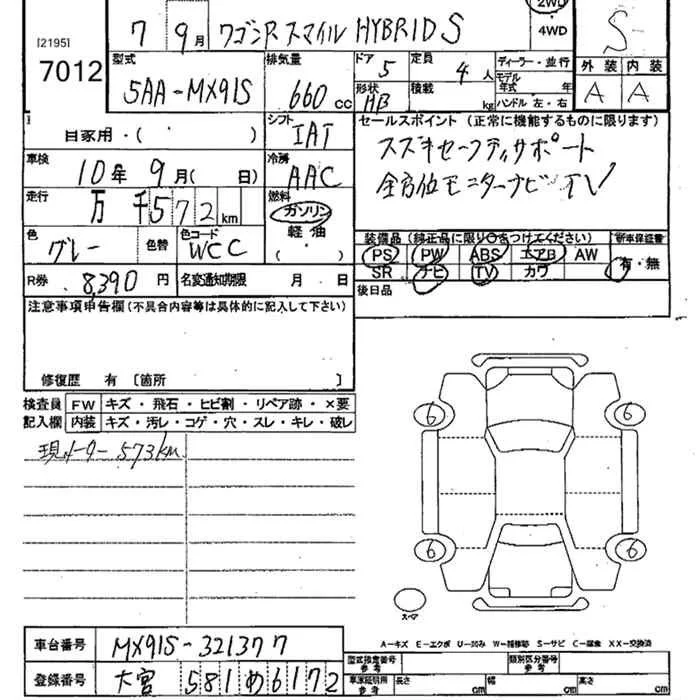 2WD
[2195] 7 9月 ワゴンR スマイル HYBRID S ・4WD S
7012 型式 排気量 ドア 5 定員 4人 ディーラー・並行 外装 内装
5AA-MX91S 660cc 形状 HB 積載 kg モデル年式 年式 ハンドル 左・右 A A
自家用・( ) シフト IAT セールスポイント (正常に機能するものに限ります)
車検 10年 9月( 日) 冷房 AAC スズキセーフティサポート
走行 万 千572km 燃料 ガソリン 全方位モニターナビ TV
色 グレー 色替 色コード WCC 軽油 ( ) 装備品 (純正品に限り○をつけてください) 新車保証書
PS PW ABS エアB AW 有・無
R券 8,390円 名変通知期限 月 日 SR ナビ TV カワ
注意事項申告欄 (不具合内容等は具体的に記入して下さい) 後日品
修復歴 有 [箇所 ]
検査員 FW キズ・飛石・ヒビ割・リペア跡・×要
記入欄 内装 キズ・汚レ・コゲ・穴・スレ・キレ・破レ
現メーター 573km
6 6
6 6
スペア
A-キズ E-エクボ U-凹み W-補修跡 S-サビ C-腐食 XX-交換済
車台番号 MX91S-321377
型式指定番号 参考 類別区分番号 参考
登録番号 大宮 581 め 6172 車庫証明用 参考 長さ cm 幅 cm 高さ cm